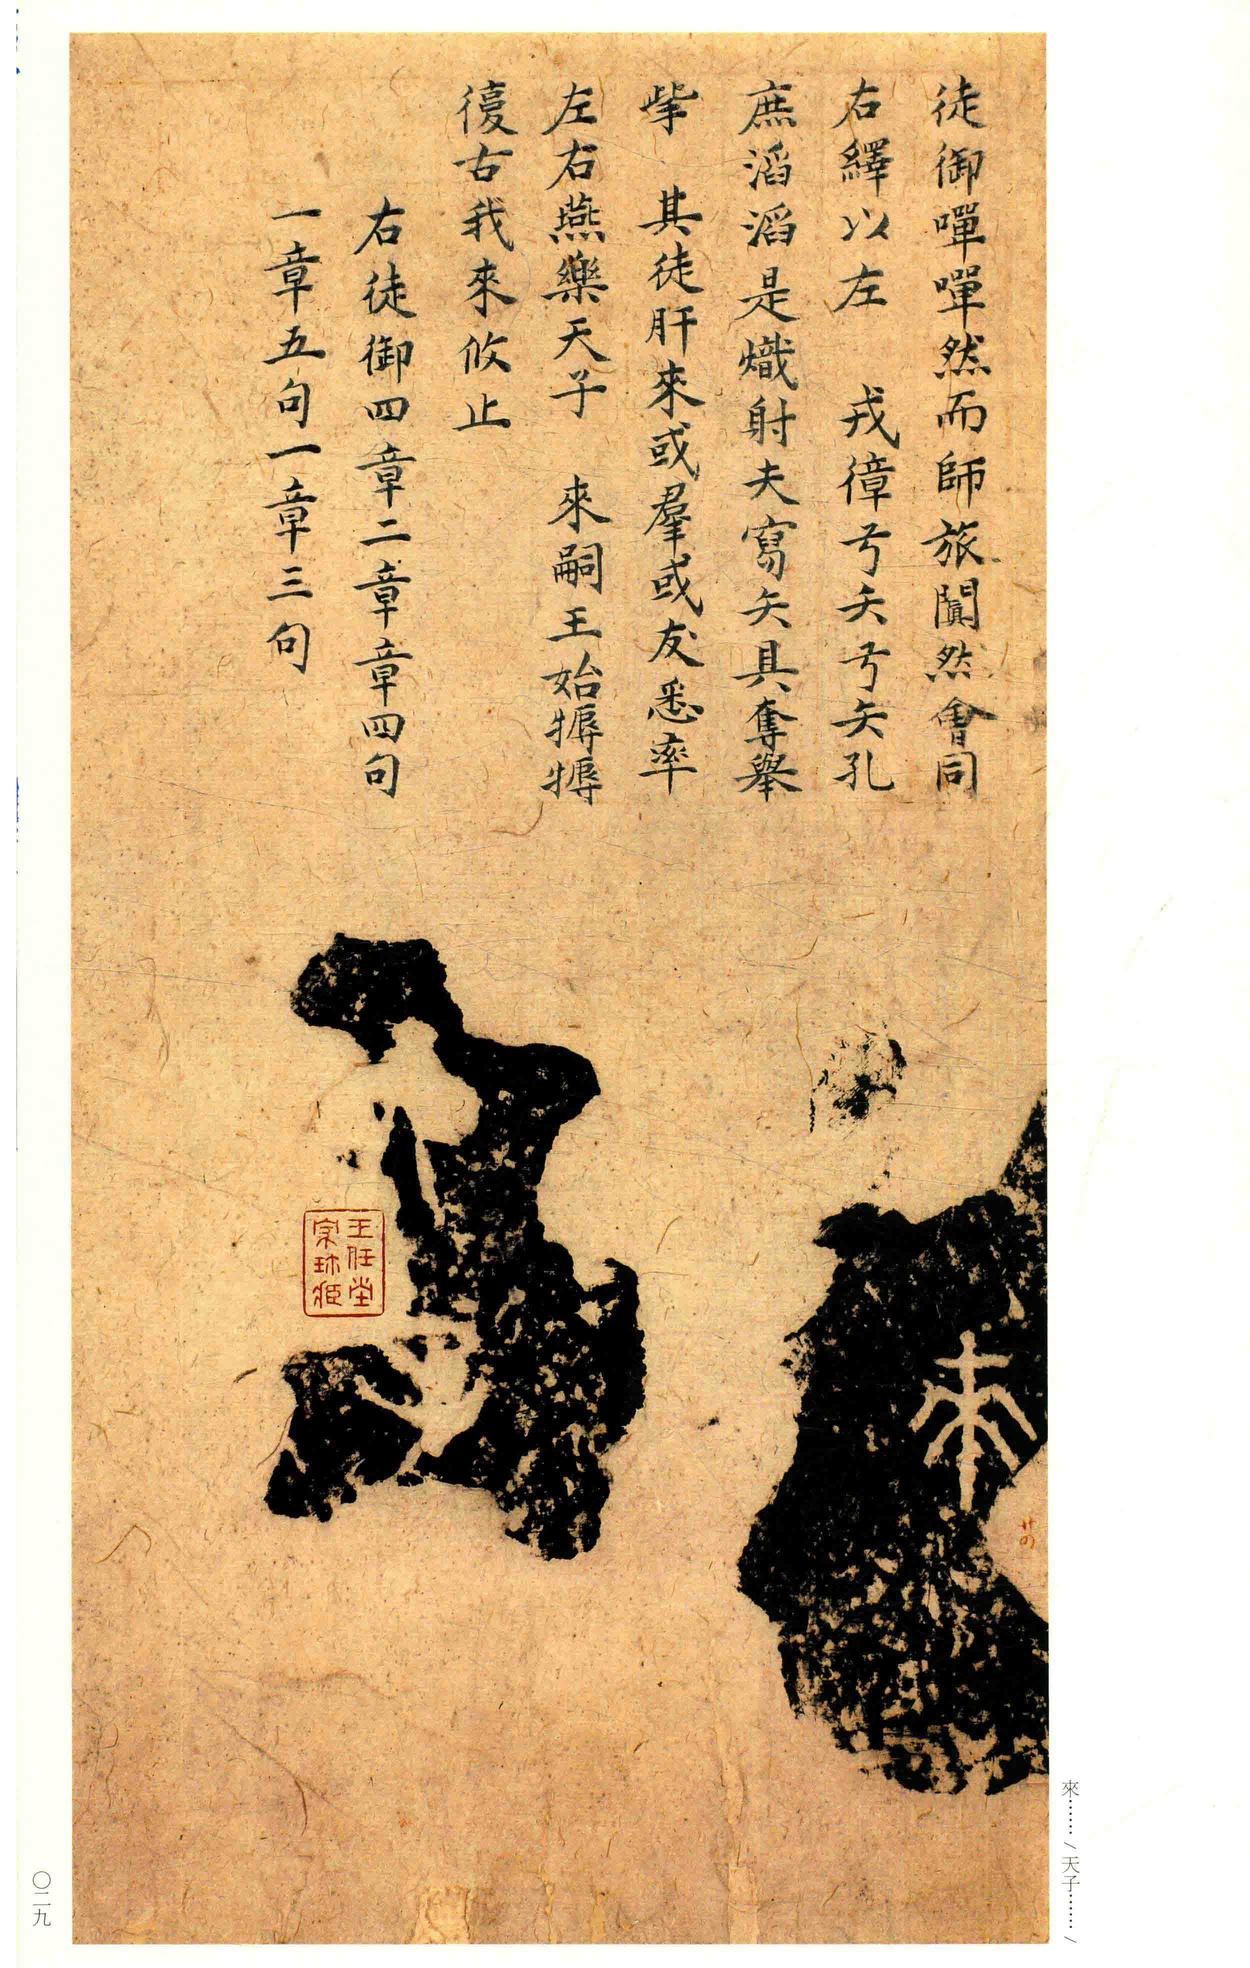 徒御嘽嘽然而師旅闐然會同
右繹以左　戎徫弓矢弓矢孔
庶滔滔是熾射夫寫矢具奪舉
柴　其徒肝來或羣或友悉率
左右燕樂天子　來嗣王始
復古我來攸止
右徒御四章二章章四句
一章五句一章三句
來
廿四
王任堂
來……/天子……/
〇二九